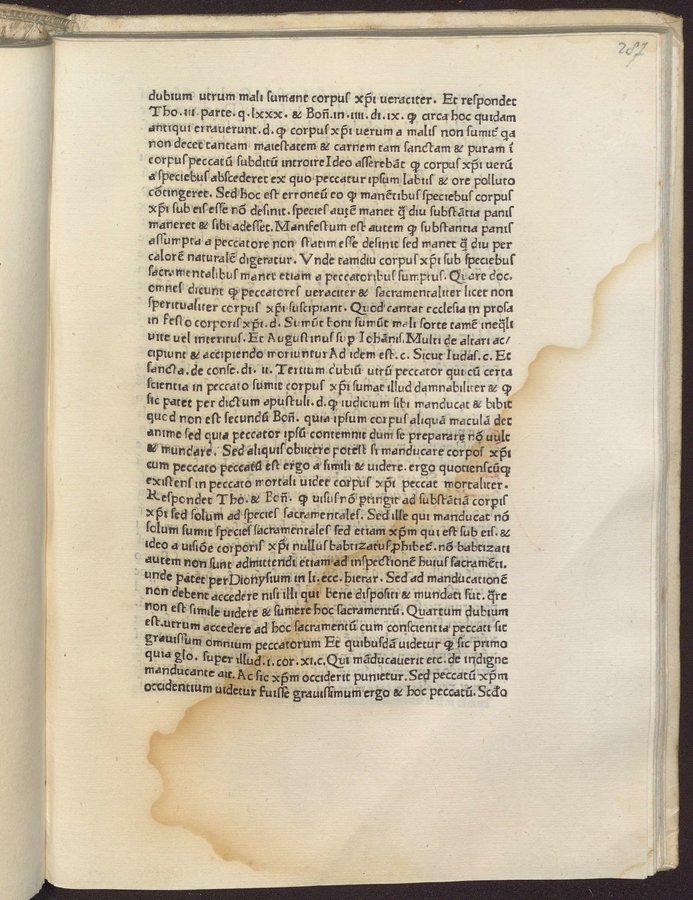 287
dubium utrum mali sumant corpus xp̄i ueraciter. Et respondet
Tho. iii parte. q. lxxx. & Boñ. in. iiii. di. ix. ꝙ circa hoc quidam
antiqui errauerunt. d. ꝙ corpus xp̄i uerum a malis non sumit̄ qa
non decet tantam maiestatem & carnem tam sanctam & puram ī
corpus peccatū subditū introire Ideo asserebāt ꝙ corpus xp̄i uerū
a speciebus abscederet ex quo peccatur ipsum labiis & ore polluto
cōtingeret. Sed hoc est erroneū eo ꝙ manētibus speciebus corpus
xp̄i sub eis esse nō desinit. species autē manet q̄ diu substātia panis
maneret & sibi adesset. Manifestum est autem ꝙ substantia panis
assumpta a peccatore non statim esse desinit sed manet q̄ diu per
calorē naturalē digeratur. Vnde tamdiu corpus xp̄i sub speciebus
sacramentalibus manet etiam a peccatoribus sumptus. Quare doc.
omnes dicunt ꝙ peccatores ueraciter & sacramentaliter licet non
speritualiter corpus xp̄i suscipiant. Quod cantat ecclesia in prosa
in festo corporis xp̄i. d. Sumūt boni sumūt mali sorte tamē ineq̄li
uite uel interitus. Et Augustinus sup Iohānis. Multi de altari ac/
cipiunt & accipiendo moriuntur Ad idem est. c. Sicut Iudas. c. Et
sancta. de conse. di. ii. Tertium dubiū utrū peccator qui cū certa
scientia in peccato sumit corpus xp̄i sumat illud damnabiliter & ꝙ
sic patet per dictum apustuli. d. ꝙ iudicium sibi manducat & bibit
qued non est secundū Boñ. quia ipsum corpus aliquā maculā det
anime sed quia peccator ipsū contemnit dum se preparare nō uult
& mundare. Sed aliquis obiicere potest si manducare corpos xp̄i
cum peccato peccatū est ergo a simili & uidere. ergo quotienscūꝙ
existens in peccato mortali uidet corpus xp̄i peccat mortaliter.
Respondet Tho. & Boñ. ꝙ uisus nō ptingit ad substātiā corpis
xp̄i sed solum ad species sacramentales. Sed ille qui manducat nō
solum sumit species sacramentales sed etiam xp̄m qui est sub eis. &
ideo a uisiōe corporis xp̄i nullus babtizatus ꝓhibet̄. nō babtizati
autem non sunt admittendi etiam ad inspectionē huius sacramēti.
unde patet per Dionysium in li. ecc. hierar. Sed ad manducationē
non debent accedere nisi illi qui bene dispositi & mundati sūt. q̄re
non est simile uidere & sumere hoc sacramentū. Quartum dubium
est. utrum accedere ad hoc sacramentū cum conscientia peccati sit
grauissum omnium peccatorum Et quibusdā uidetur ꝙ sic primo
quia glo. super illud. i. cor. xi. c. Qui māducauerit etc. de indigne
manducante ait. Ac sic xp̄m occiderit punietur. Sed peccatū xp̄m
occidentium uidetur fuisse grauissimum ergo & hoc peccatū. Scd̄o